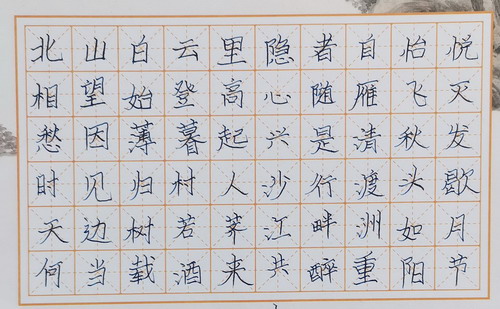 北山白云里隐者自怡悦
相望始登高心随雁飞灭
愁因薄暮起兴是清秋发
时见归村人沙行渡头歇
天边树若荠江畔洲如月
何当载酒来共醉重阳节